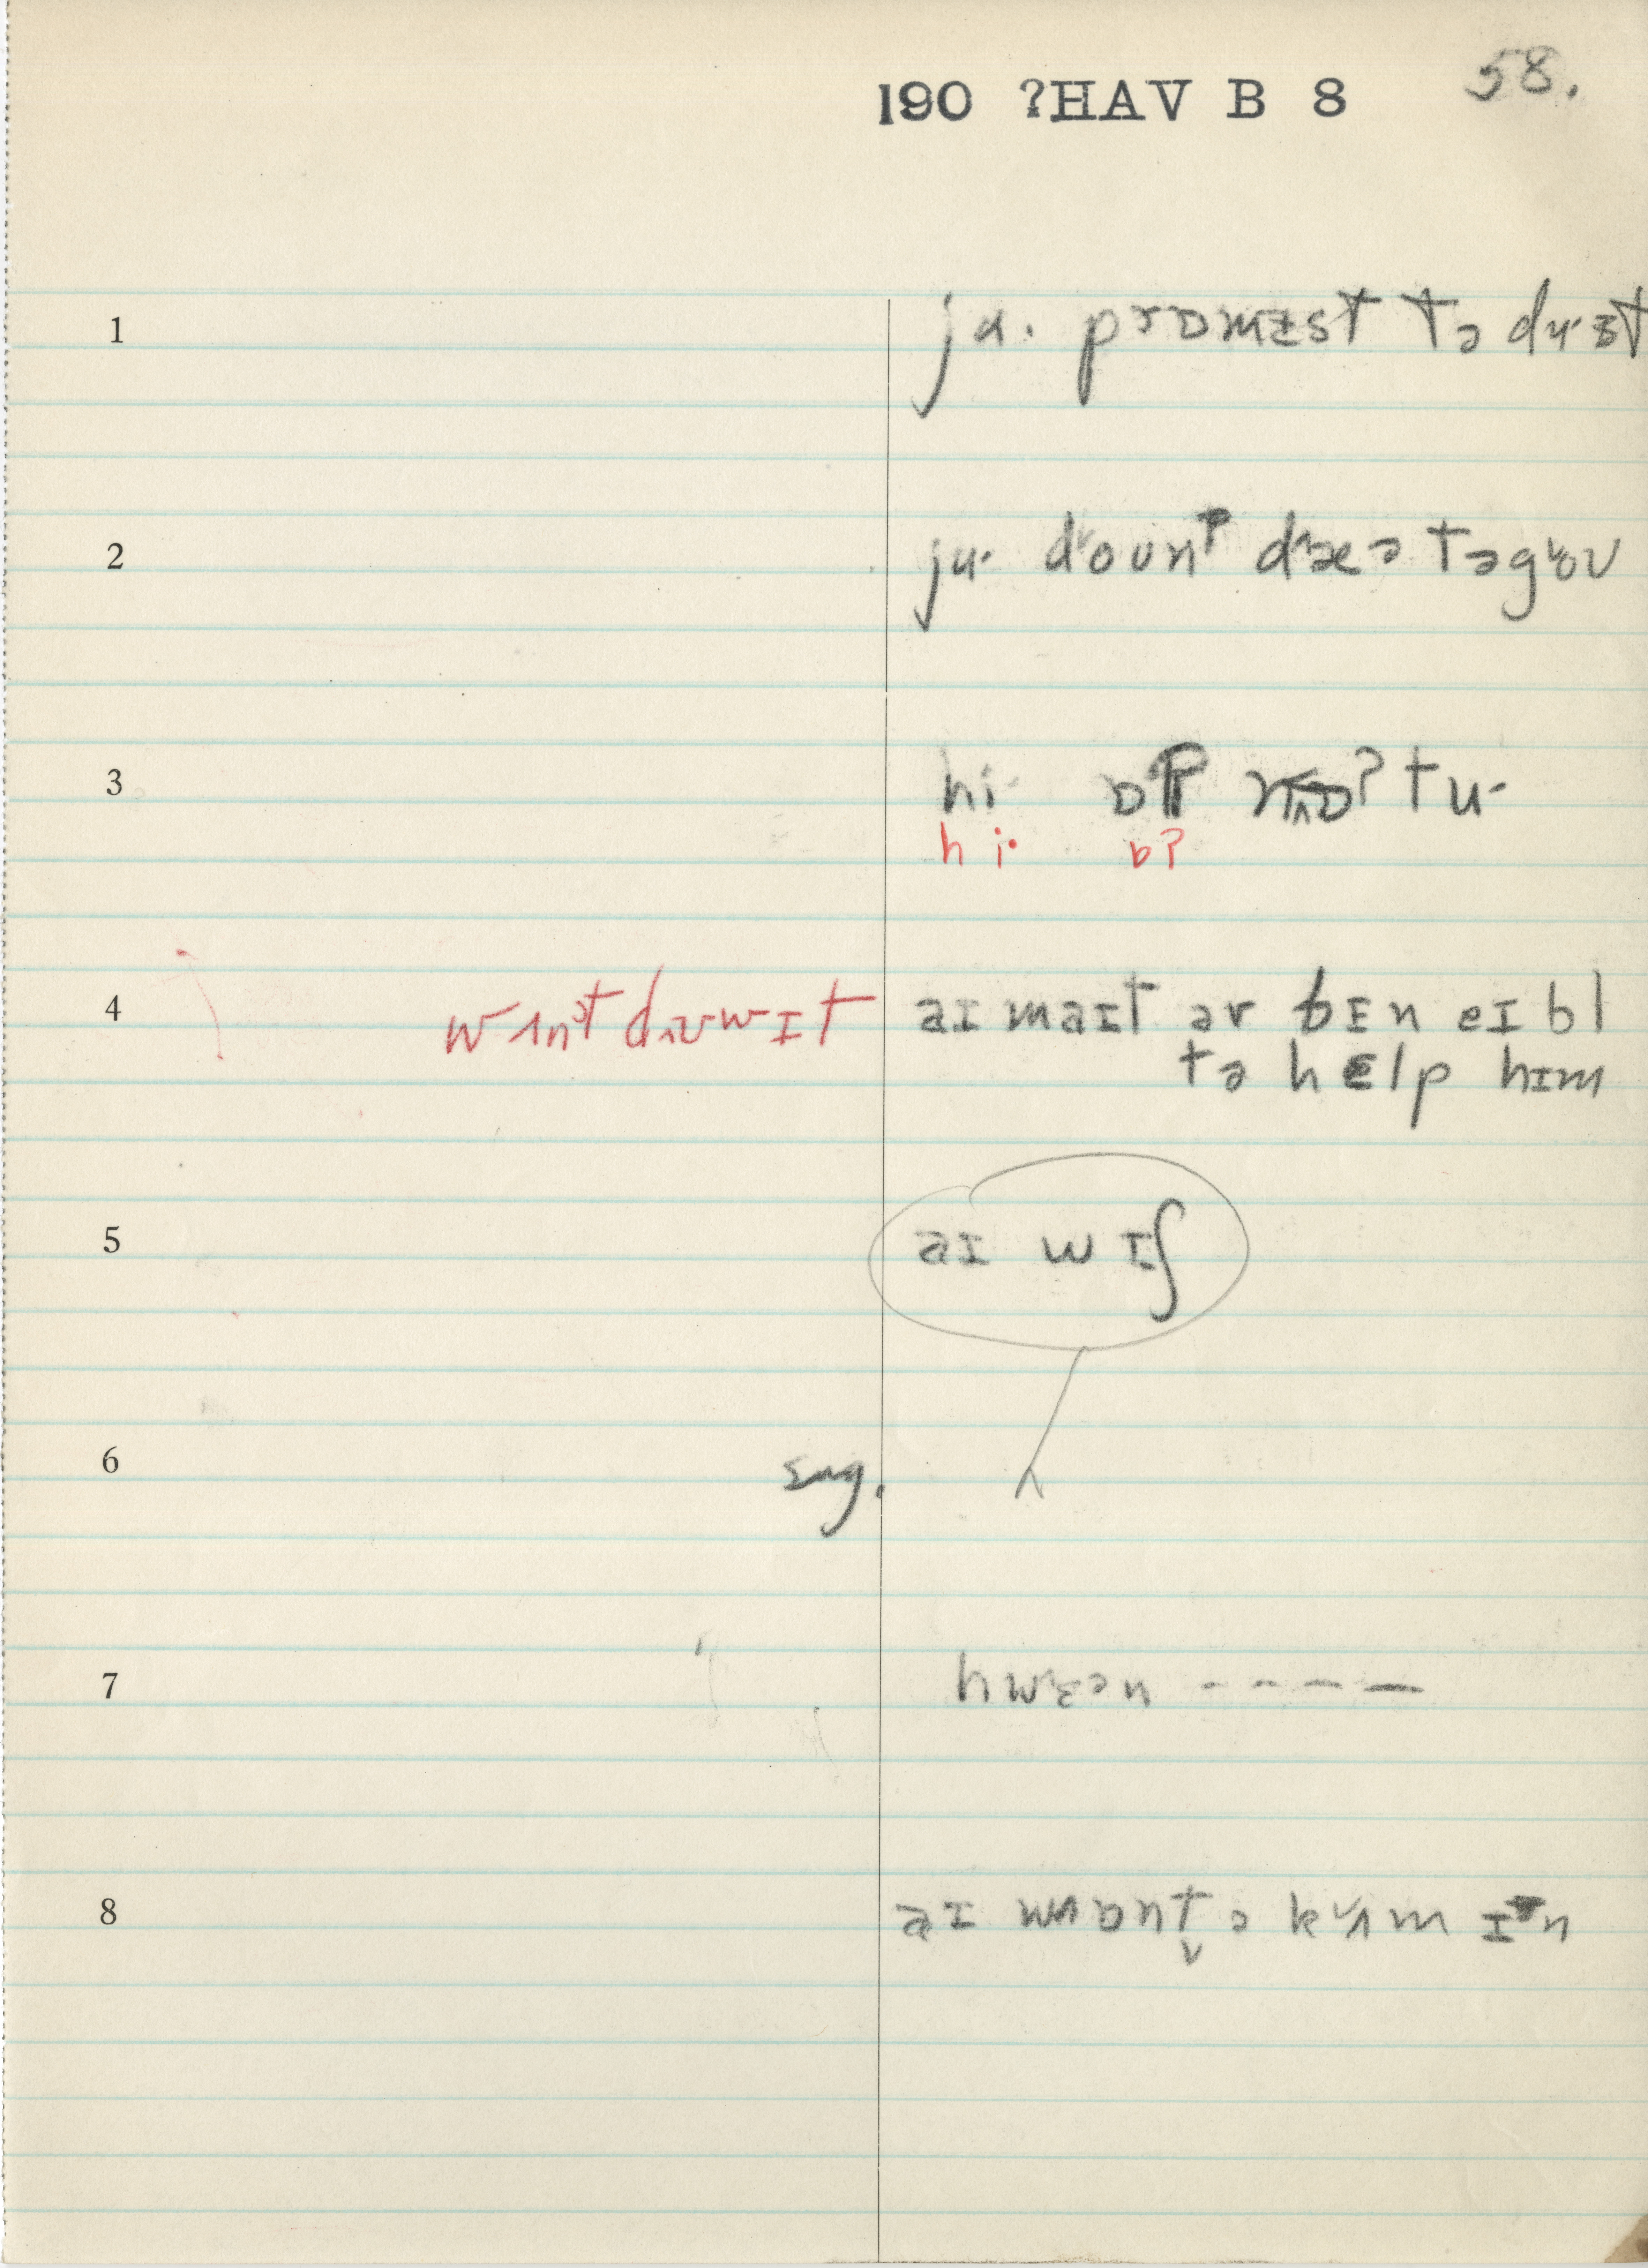 190 ?HAV B 8 58.
1 ju· prɒmɪst tə du·ɪt
2 ju· doʊnˀt dæə təgoʊ
3 hi· ɒˀt tu·
hi· ɒʔ
4 wʌnt duwɪt aɪ maɪt əv bɪn eɪbl
tə hɛlp hɪm
5 aɪ wɪʃ
6 sug.
7 hwɛən - - - -
8 aɪ wɒnt̬ ə kʌm ɪn